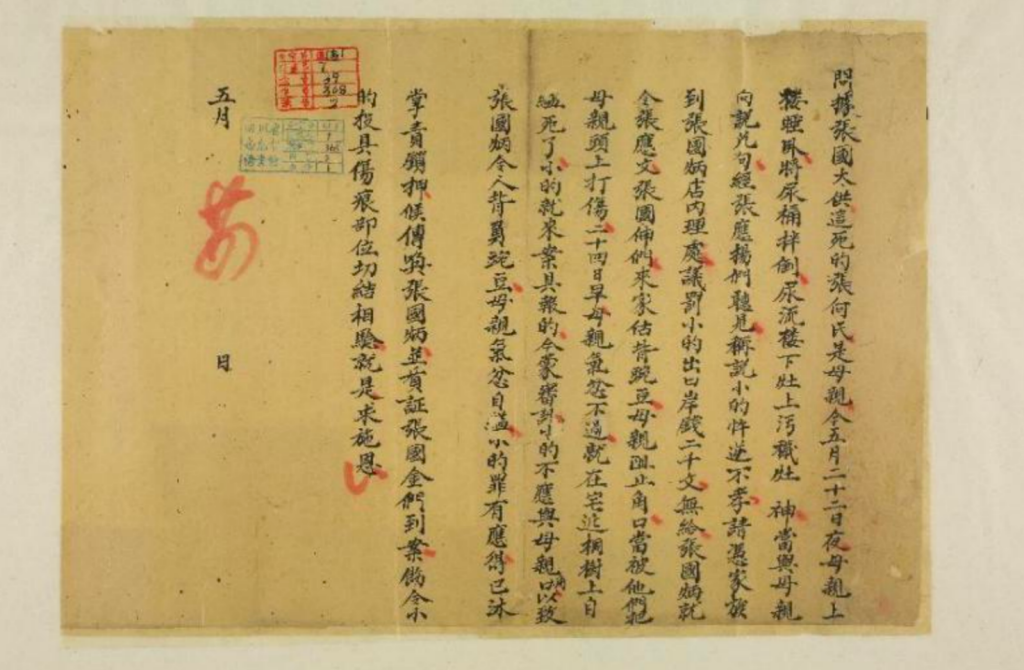 問據張國太供這死的張何氏是母親今五月二十二日夜母親上
樓睡臥將尿桶拌倒尿流樓下灶上污穢灶 神當與母親
向說幾句經張應揚們聽見稱說小的忤逆不孝請憑家族
到張國炳店內理處議罰小的出口岸錢二千文無給張國炳就
令張應文張國伸們來家估背豌豆母親阻止角口當被他們把
母親頭上打傷二十四日早母親氣忿不過就在宅近桐樹上自
縊死了小的就來案具報的今蒙審訊小的不應與母親角口以致
張國炳令人背買豌豆母親氣忿自縊小的罪有應得已沐
掌責鎖押候傳喚張國炳並質証張國金們到案飭令小
的投具傷痕部位切結相驗就是求施恩
五月 日